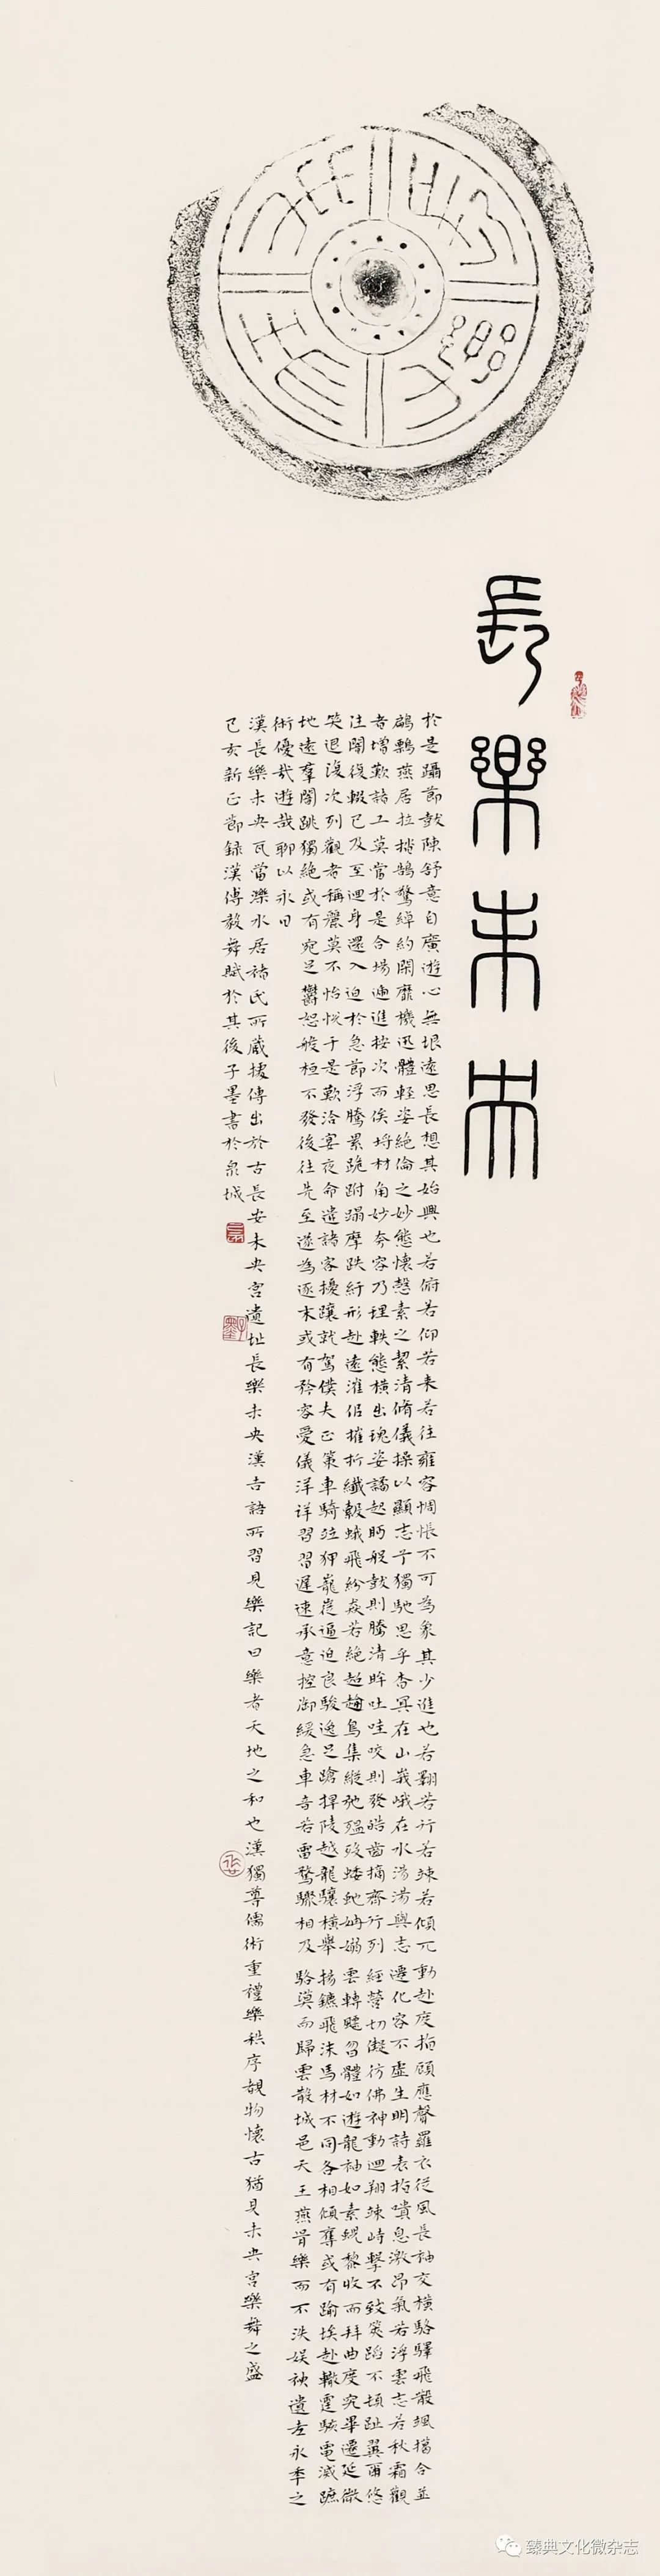 長樂未央
於是躡節鼓陳舒意自廣遊心無垠遠思長想其始興也若俯若仰若來若往雍容惆悵不可為象其少進也若翱若行若竦若傾兀動赴度指顧應聲羅衣從風長袖交橫駱驛飛散颯擖合並
鶣鷅燕居拉㧺鵠驚綽約閑靡機迅體輕姿絕倫之妙態懷愨素之絜清脩儀操以顯志兮獨馳思乎杳冥在山峨峨在水湯湯與志遷化容不虛生明詩表指嘳息激昂氣若浮雲志若秋霜觀
者增歎諸工莫當於是合場遞進按次而俟埒材角妙夸容乃理軼態橫出瑰姿譎起眄般鼓則騰清眸吐哇咬則發皓齒摘齊行列經營切儗彷彿神動迴翔竦峙擊不致筴蹈不頓趾翼爾悠
往闇復輟已及至迴身還入迫於急節浮騰累跪跗蹋摩跌紆形赴遠漼似摧折纖縠蛾飛紛猋若絕超趫鳥集縱弛殟歿蜲蛇姌嫋雲轉飄曶體如遊龍袖如素蜺黎收而拜曲度究畢遷延微
笑退復次列觀者稱麗莫不怡悅于是歡洽宴夜命遣諸客擾躟就駕僕夫正策車騎並狎巃嵸逼迫良駿逸足蹌捍陵越龍驤橫舉揚鑣飛沫馬材不同各相傾奪或有踰埃赴轍霆駭電滅蹠
地遠群闇跳獨絕或有宛足鬱怒般桓不發後往先至遂為逐末或有矜容愛儀洋洋習習遲速承意控御緩急車音若雷騖驟相及駱漠而歸雲散城邑天王燕胥樂而不泆娛神遺老永年之
術優哉遊哉聊以永日
漢長樂未央瓦當濼水居褚氏所藏據傳出於古長安未央宮遺址長樂未央漢吉語所習見樂記曰樂者天地之和也漢獨尊儒術重禮樂秩序覩物懷古猶見未央宮樂舞之盛
己亥新正節錄漢傅毅舞賦於其後子墨書於泉城
臻典文化微杂志